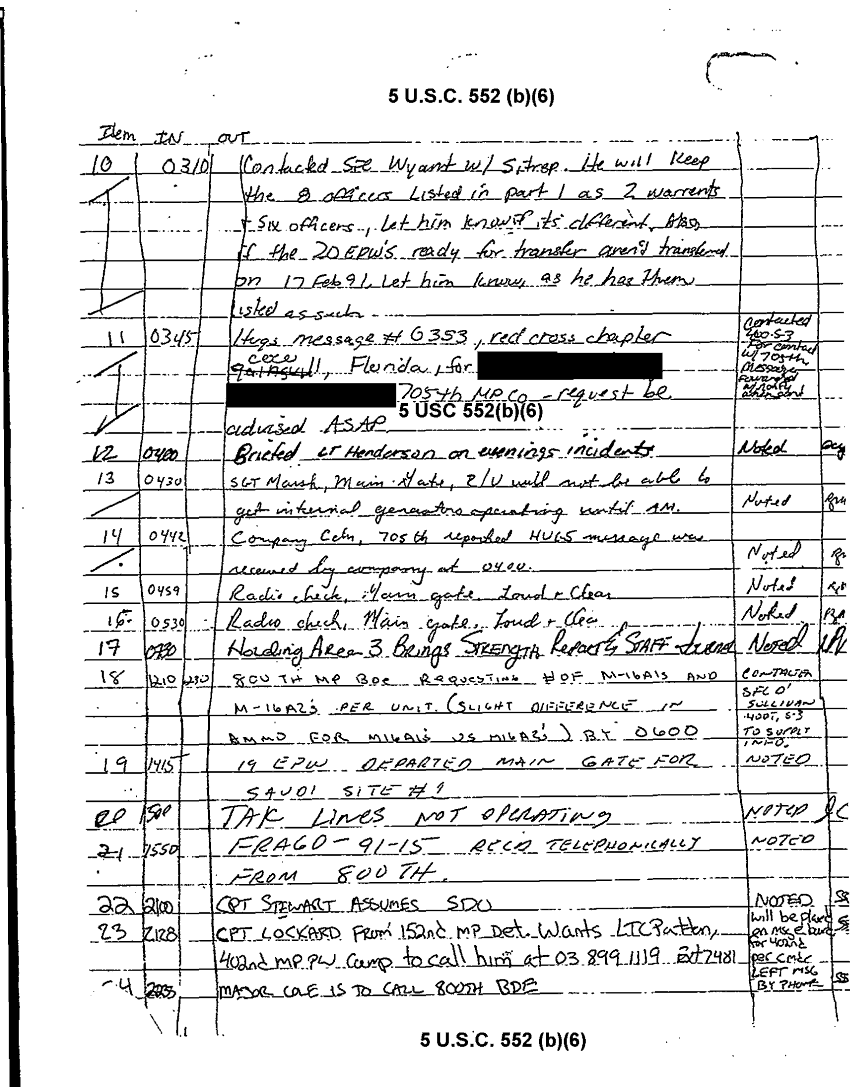 5 U.S.C. 552 (b)(6)
Item IN OUT
10 0310 Contacted SFC Wyant w/ Sitrep. He will keep
the 8 officers Listed in part 1 as 2 warrents
+ six officers, Let him know if its different. Also
if the 20 EPW'S ready for transfer aren't transferred
on 17 Feb 91, Let him know, as he has them
listed as such.
11 0345 Hugs message # 6353, red cross chapter
Florida, for
705th MP Co - request be
5 USC 552(b)(6)
advised ASAP
Contacted
400 S-3
For contact
w/ 705th
message
Forwarded
12 0400 Briefed LT Henderson on evenings incidents Noted
13 0430 SGT Marsh, Main Gate, E/U will not be able to
get internal generators operating until AM. Noted
14 0442 Company Cmdr, 705th reported HUGS message was
received by company at 0400. Noted
15 0459 Radio check, Main gate, Loud + Clear Noted
16 0530 Radio check, Main gate, Loud + Clea Noted
17 0730 Holding Area 3 Brings STRENGTH Report & STAFF Journal Noted
18 1210 800TH MP BDE REQUESTING # OF M-16A1S AND
M-16A2'S PER UNIT. (SLIGHT DIFFERENCE IN
AMMO FOR M16A1'S VS M16A2'S) BY 0600
CONTACTED
SFC O'
SULLIVAN
400T, S-3
TO SUPPLY
INFO.
19 1415 19 EPW DEPARTED MAIN GATE FOR NOTED
SAUDI SITE #1
20 1500 TAK LINES NOT OPERATING NOTED
21 1550 FRAGO-91-15 RECD TELEPHONICALLY NOTED
FROM 800TH.
22 2100 CPT STEWART ASSUMES SDO NOTED SS
23 2128 CPT LOCKARD FROM 152nd MP Det. Wants LTC Patton,
402nd MP PW Camp to call him at 03 899 1119 Ext 7481
will be place
on msg board
for 402nd
per CMDC
-4 MAJOR COLE IS TO CALL 800TH BDE
LEFT MSG
BY PHONE SS
5 U.S.C. 552 (b)(6)